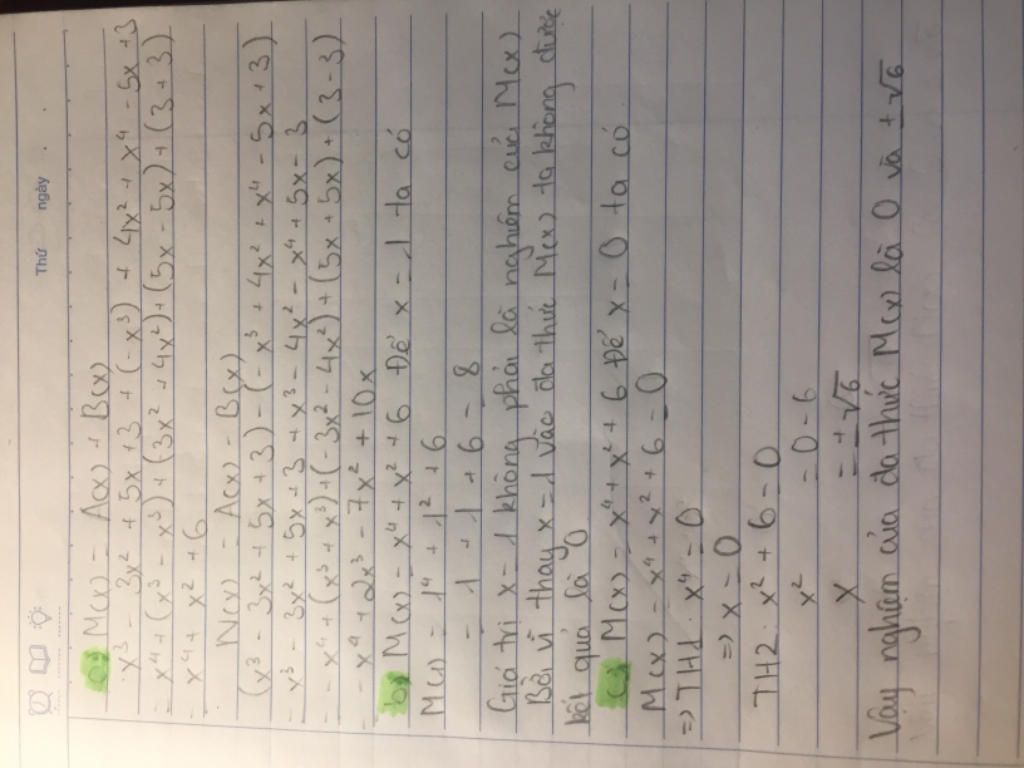 Thứ ngày
a, M(x) = A(x) + B(x)
x³ - 3x² + 5x + 3 + (-x³) + 4x² + x⁴ - 5x + 3
= x⁴ + (x³ - x³) + (3x² + 4x²) + (5x - 5x) + (3 + 3)
= x⁴ + x² + 6
N(x) = A(x) - B(x)
(x³ - 3x² + 5x + 3) - (-x³ + 4x² + x⁴ - 5x + 3)
= x³ - 3x² + 5x + 3 + x³ - 4x² - x⁴ + 5x - 3
= -x⁴ + (x³ + x³) + (-3x² - 4x²) + (5x + 5x) + (3 - 3)
= -x⁴ + 2x³ - 7x² + 10x
b, M(x) = x⁴ + x² + 6 Để x = 1 ta có
M(1) = 1⁴ + 1² + 6
= 1 + 1 + 6 = 8
Giá trị x = 1 không phải là nghiệm của M(x)
Bởi vì thay x = 1 vào đa thức M(x) ta không được
kết quả là 0
c, M(x) = x⁴ + x² + 6 Để x = 0 ta có
M(x) = x⁴ + x² + 6 = 0
=> TH1. x⁴ = 0
=> x = 0
TH2. x² + 6 = 0
x² = 0 - 6
x = ±√6
Vậy nghiệm của đa thức M(x) là 0 và ±√6